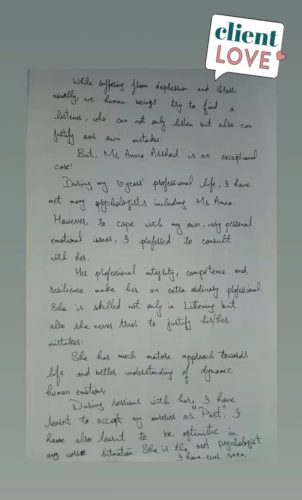 client
LOVE
While suffering from depression and stress,
usually, we human beings try to find a
listener, who can not only listen but also can
justify our own mistakes.
But, Ms. Amna Arshad is an exceptional
case.
During my 10 years' professional life, I have
met many psychologists including Ms Amna.
However, to cope with my own, very personal
emotional issues, I preferred to consult
with her.
Her professional integrity, competence and
resilience make her an extra ordinary professional.
She is skilled not only in listening but
also she never tries to justify his/her
mistakes.
She has much mature approach towards
life and better understanding of dynamic
human emotions.
During sessions with her, I have
learnt to accept my miseries as "Past". I
have also learnt to be optimistic in
any worse situation. She is the best psychologist
I have ever seen.